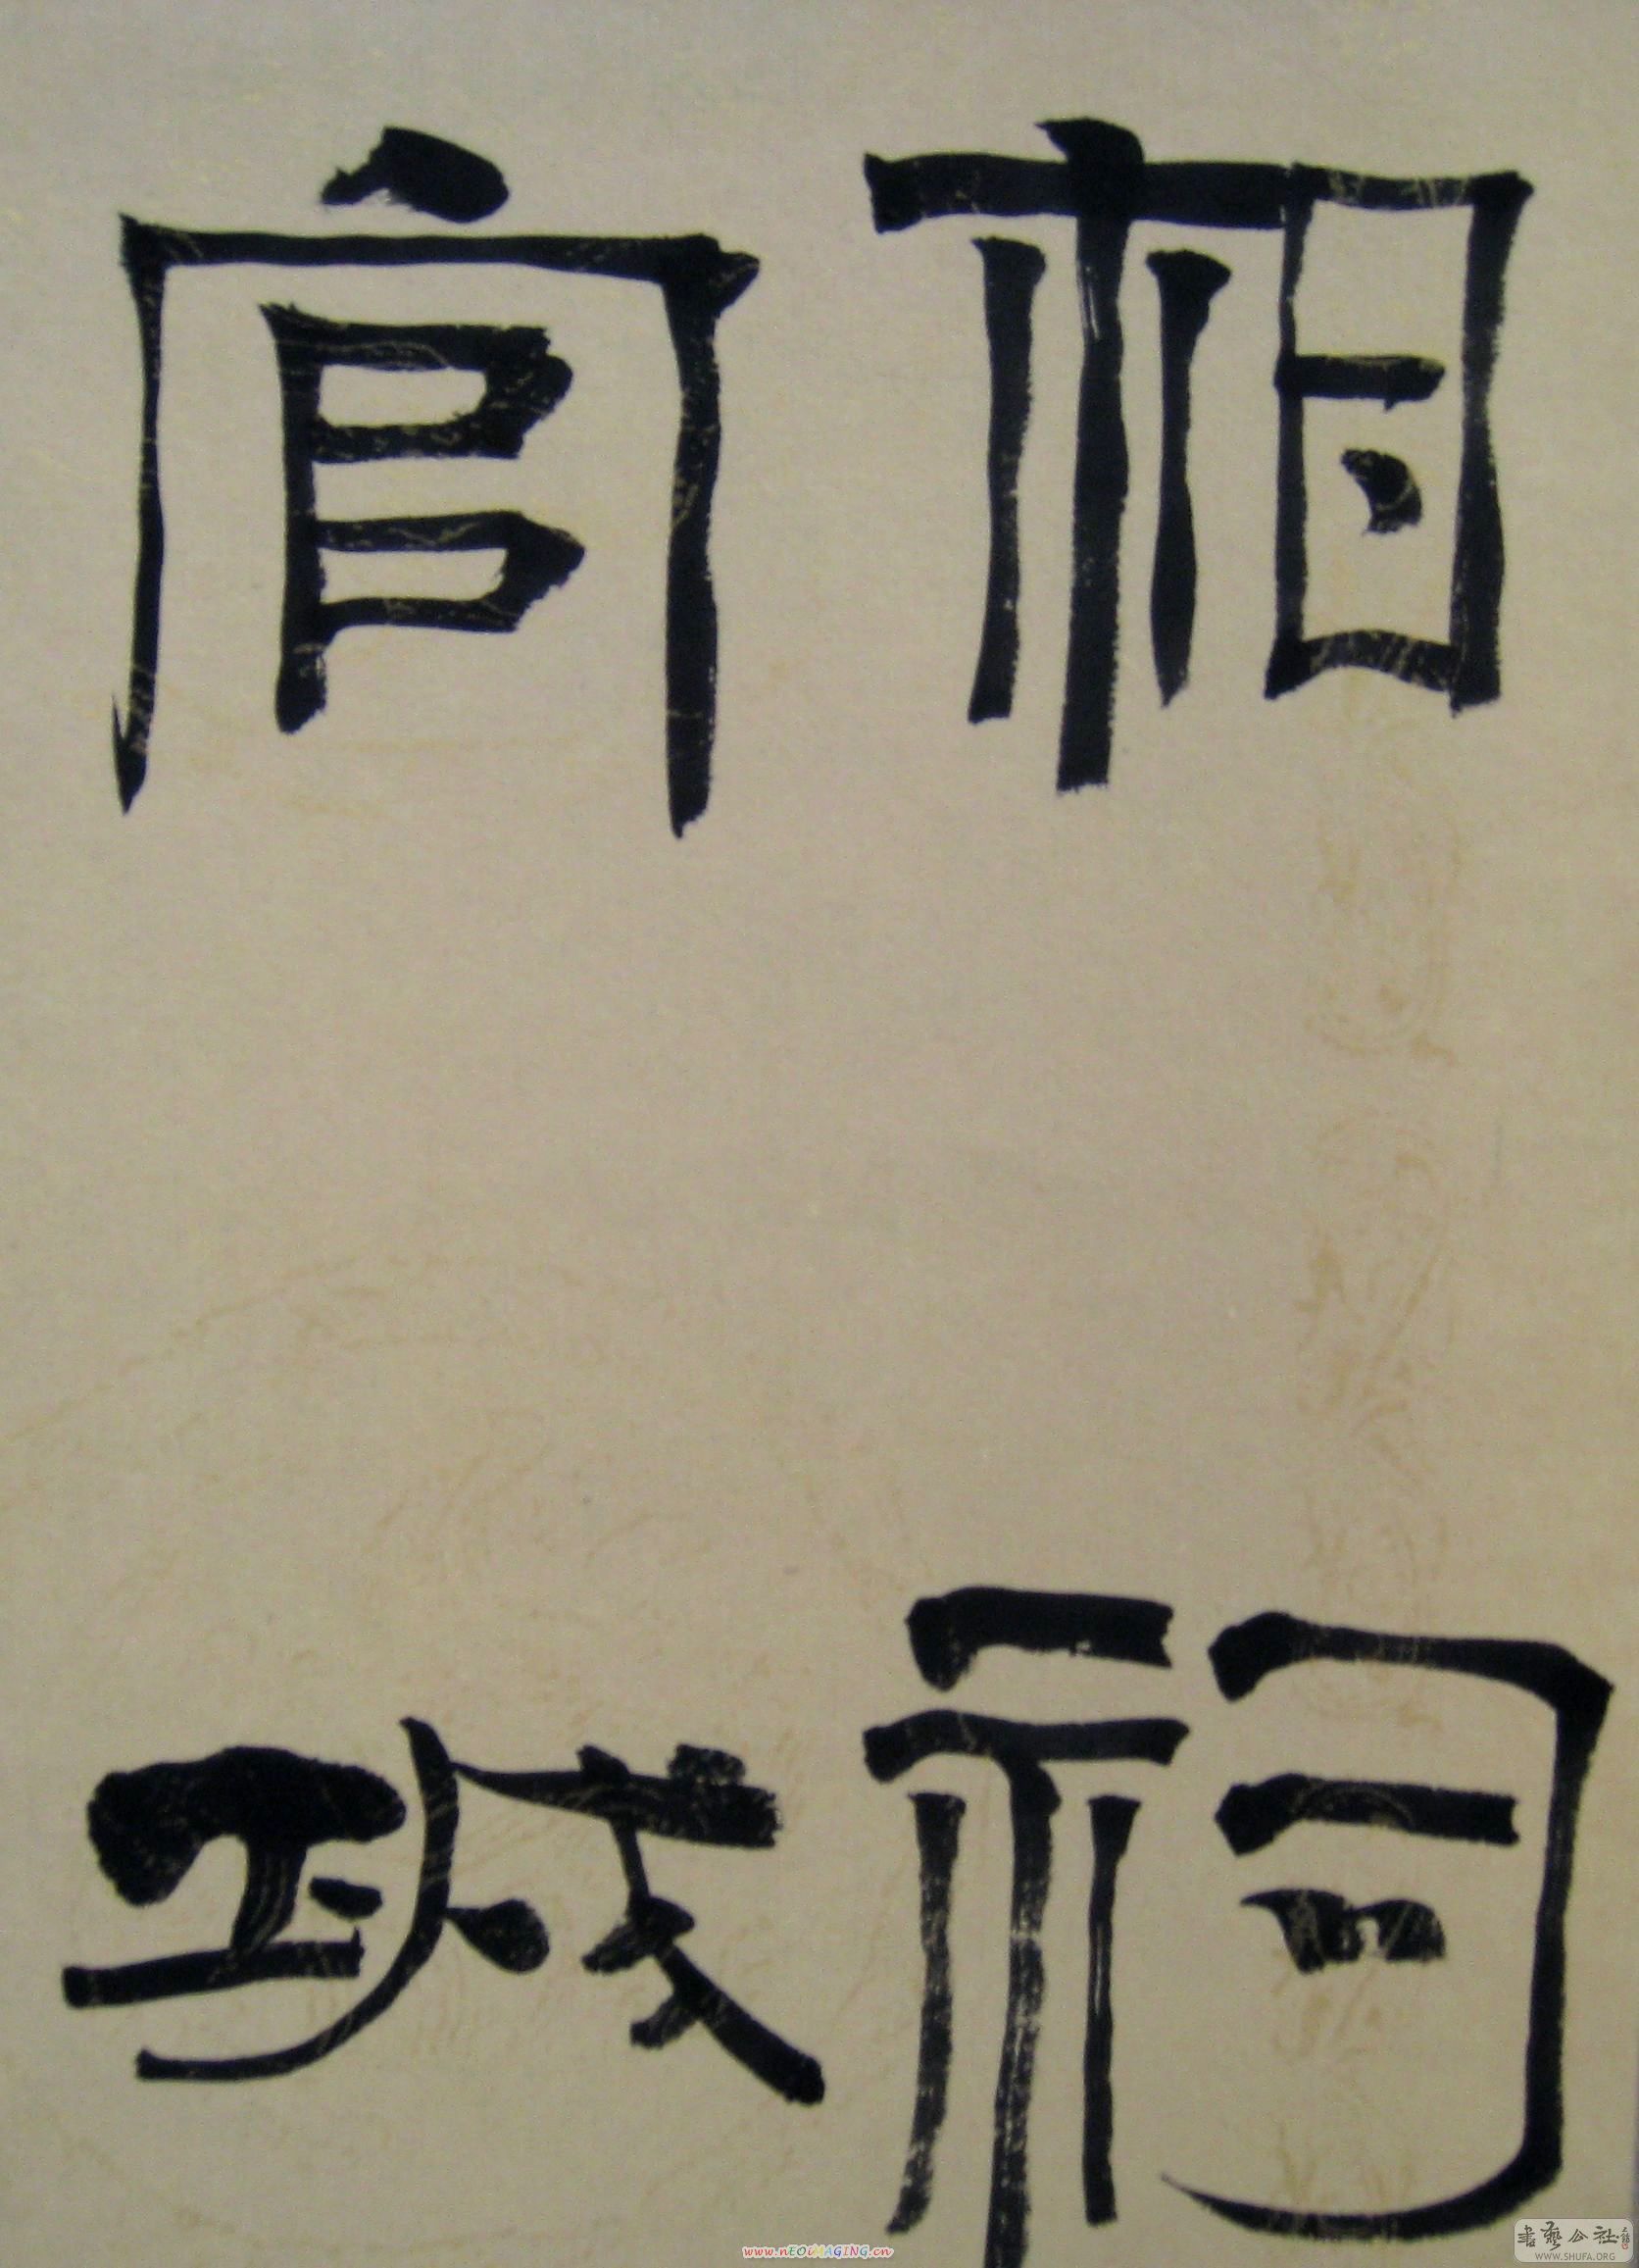 相祠
官城
www.nEOiMAGING.cn
書藝公社
WWW.SHUFA.ORG